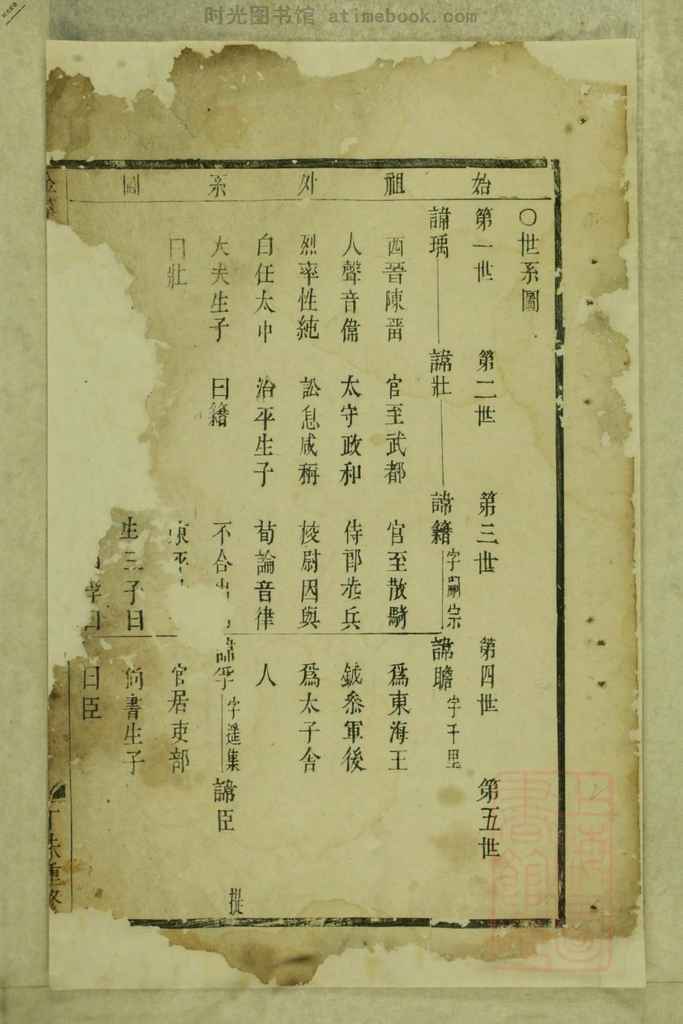 时光图书馆 atimebook.com
始祖外系圖
○世系圖
第一世 第二世 第三世 第四世 第五世
諱瑀 諱壯 諱籍 字嗣宗 諱瞻 字千里
西晉陳畱 官至武都 官至散騎 爲東海王
人聲音偹 太守政和 侍郎叅兵 鉞叅軍後
烈率性純 訟息咸稱 校尉因與 爲太子舍
自任太中 治平生子 荀論音律 人
大夫生子 曰籍 不合出 諱孚 字遥集 諱臣
曰壯 東平 官居吏部
生三子曰 尚書生子
曰 曰臣
丁未重修